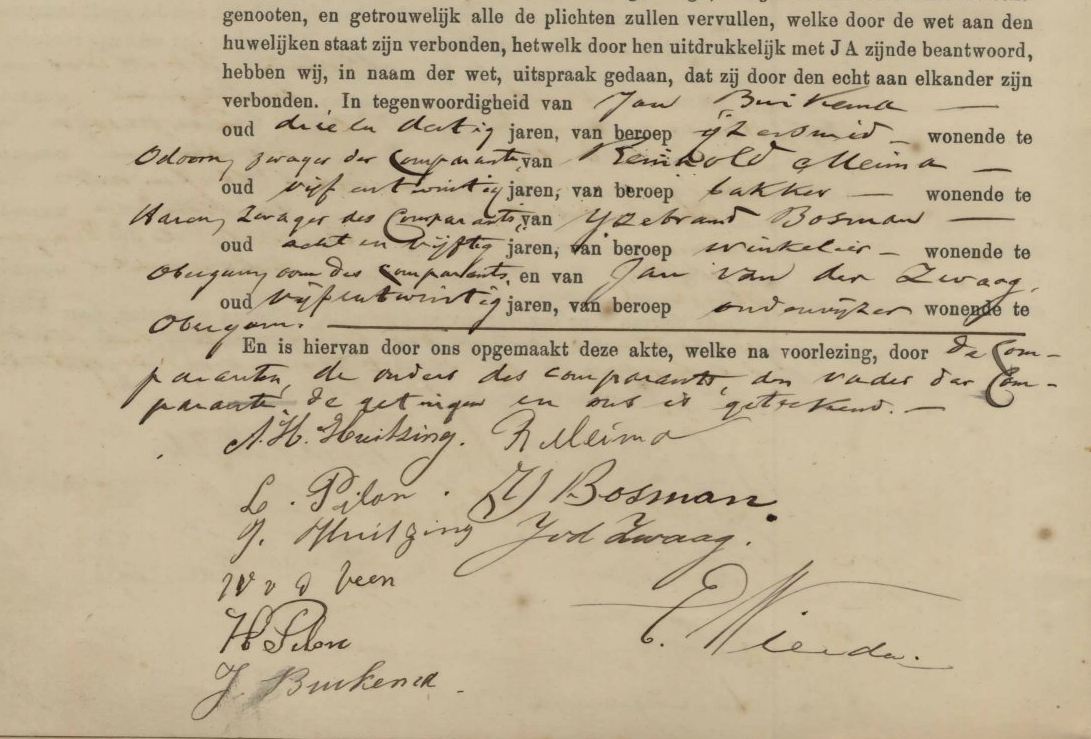 genooten, en getrouwelijk alle de plichten zullen vervullen, welke door de wet aan den
huwelijken staat zijn verbonden, hetwelk door hen uitdrukkelijk met JA zijnde beantwoord,
hebben wij, in naam der wet, uitspraak gedaan, dat zij door den echt aan elkander zijn
verbonden. In tegenwoordigheid van Jan Buikema —
oud drie en dertig jaren, van beroep ijzersmid — wonende te
Odoorn, zwager der Comparante, van Reinhold Meima —
oud vijf en twintig jaren, van beroep bakker — wonende te
Haren, Zwager des Comparants, van IJzebrand Bosman —
oud acht en vijftig jaren, van beroep winkelier — wonende te
Obergum, oom des Comparants, en van Jan van der Zwaag,
oud vijfentwintig jaren, van beroep onderwijzer wonende te
Obergum. —
En is hiervan door ons opgemaakt deze akte, welke na voorlezing, door de Com-
paranten, de ouders des comparants, den vader der Com-
parante, de getuigen en ons is geteekend. —
A. H. Huitzing. R Meima
L. Pilon. IJ Bosman.
J. Huitzing JvdZwaag.
W v d Veen
H Pilon
J. Buikema